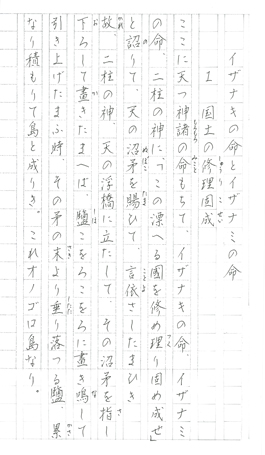 イザナキの命とイザナミの命
I 国土の修理固成
ここに天つ神諸の命もちて、イザナキの命、イザナミ
の命、二柱の神に、「この漂へる國を修め理り固め成せ」
と詔りて、天の沼矛を賜ひて、言依さしたまひき
故、二柱の神、天の浮橋に立たして、その沼矛を指し
下ろして畫きたまへば、鹽こをろこをろに畫き鳴して
引き上げたまふ時、その矛の末より垂り落つる鹽、累
なり積もりて島と成りき。これオノゴロ島なり。